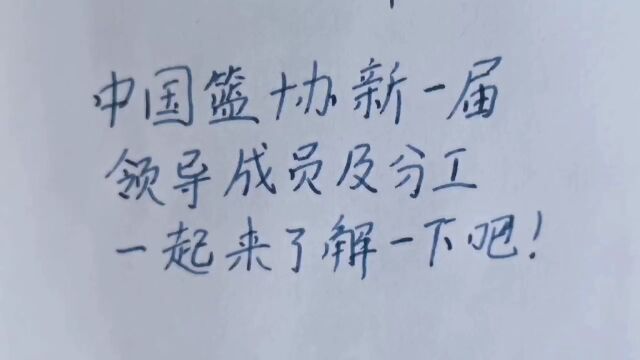 中国篮协新一届
领导成员及分工
一起来了解一下吧！